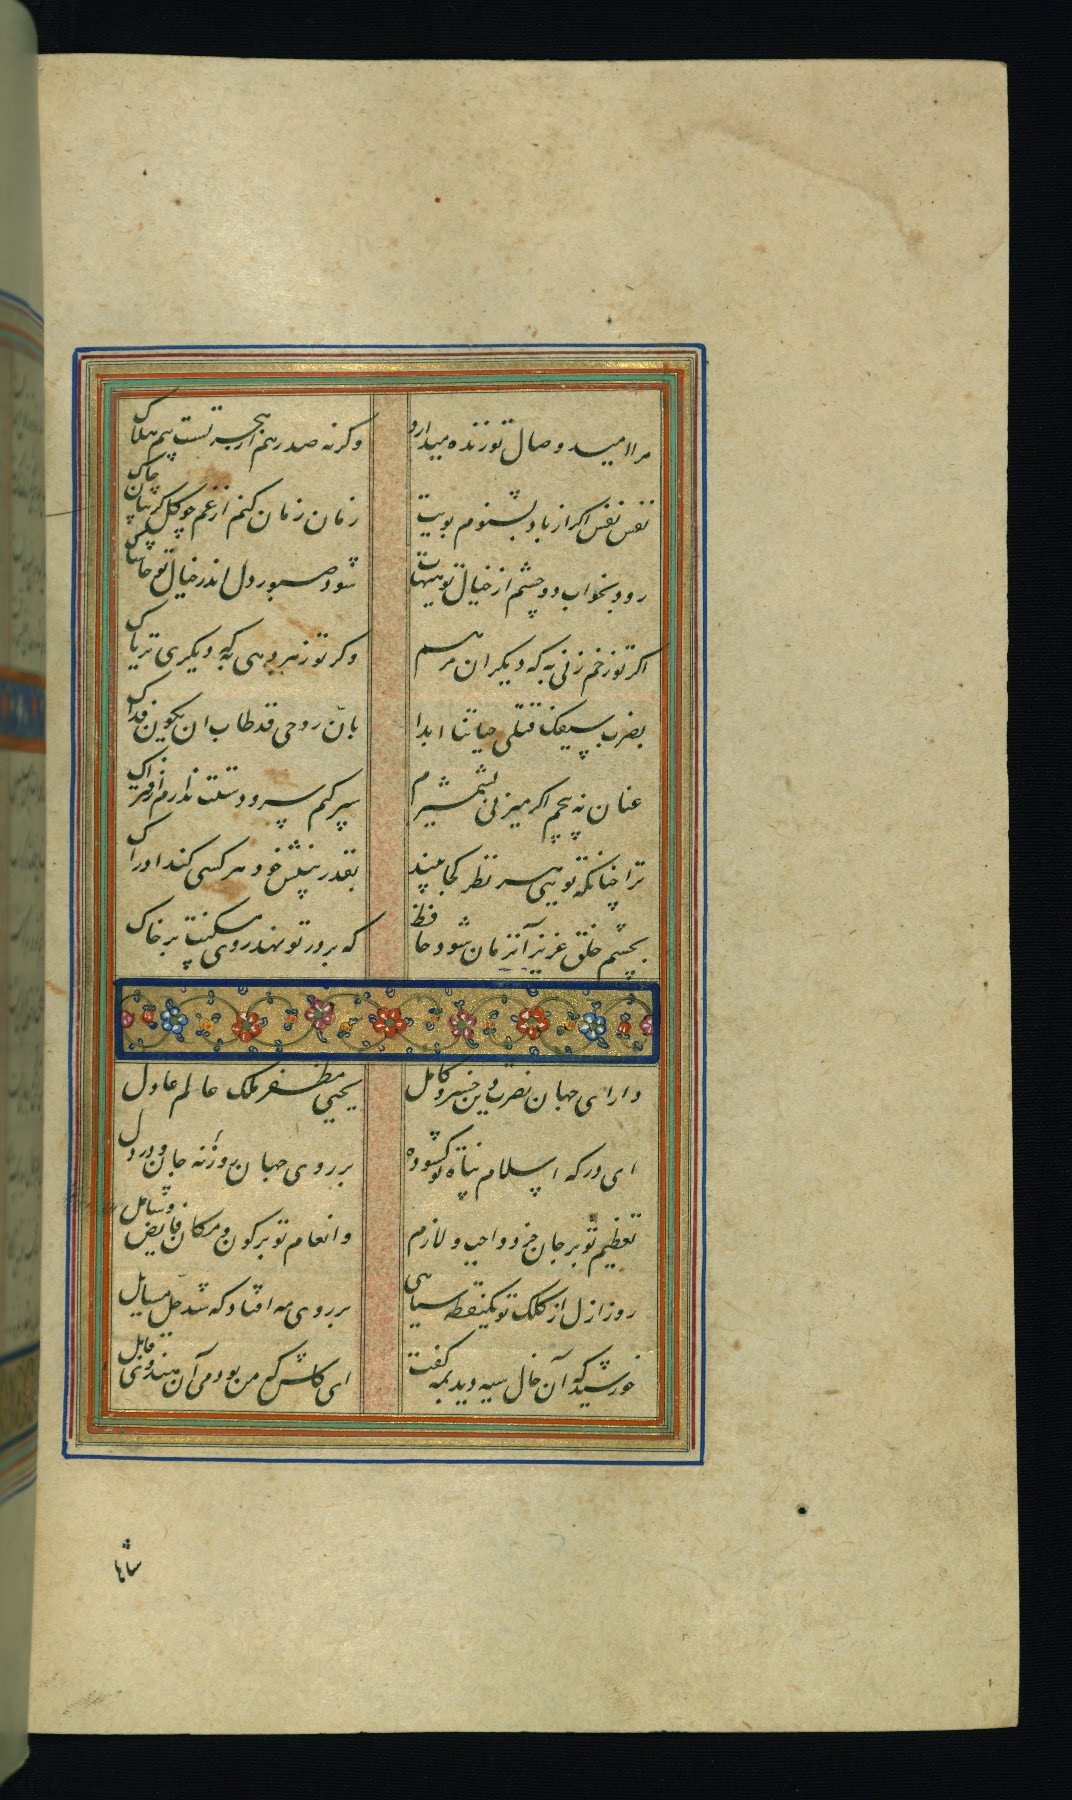 مرا امید وصال تو زنده میدارد وکرنه صد رهم از هجر تست بیم هلاک
نفس نفس اکر از باد بشنوم بویت زمان زمان کنم از غم چو کل کریبان چاک
رود بخواب دو چشم از خیال تو هیهات شود صبور دل اندر خیال تو حاشاک
اکر تو زخم زنی به که دیکران مرهم وکر تو زهر دهی به که دیکری تریاک
بضرب سیفک قتلی حیاتنا ابدا بان روحی قد طاب ان یکون فداک
عنان نه پیچم اکر میزنی بشمشیرم سپر کنم سر و دستت ندارم از فتراک
ترا چنانکه تویی هر نظر کجا بیند بقدر بینش خود هر کسی کند ادراک
بچشم خلق عزیز آنزمان شود حافظ که بر در تو نهد روی مسکنت بر خاک
دارای جهان نصرت دین خسرو کامل یحیی مظفر ملک عالم عادل
ای درکه اسلام پناه تو کشوده بر روی جهان روزنه جان و در دل
تعظیم تو بر جان خرد واجب و لازم وانعام تو بر کون و مکان فایض و شامل
روز ازل از کلک تو یکنقطه سیاهی بر روی مه افتاد که شد حل مسایل
خورشید که آن خال سیه دید بمه کفت ای کاش که من بودمی آن هندوی قابل
شاها